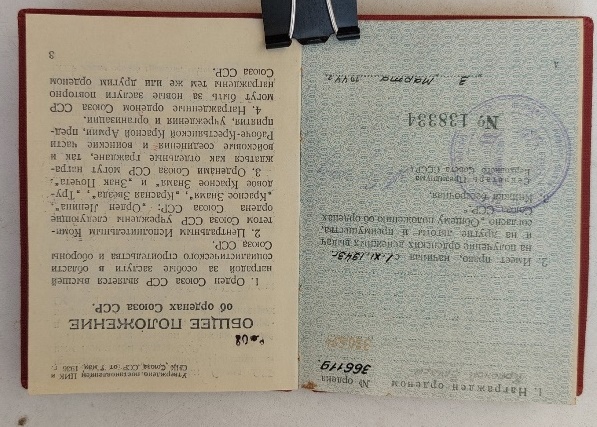 1. Награжден орденом
Красной Звезды
№ ордена
366119
2. Имеет право, начиная с 1. XI. 1943 г.
на получение орденских денежных выдач
и на другие льготы и преимущества,
согласно „Общему положению об орденах
Союза ССР“.
Секретарь Президиума
Верховного Совета СССР:
№ 138334
„ 3 „ марта 1944 г.
1
Утверждено постановлением ЦИК и
СНК Союза ССР от 7 мая 1936 г.
ОБЩЕЕ ПОЛОЖЕНИЕ
об орденах Союза ССР.
1. Орден Союза ССР является высшей
наградой за особые заслуги в области
социалистического строительства и обороны
Союза ССР.
2. Центральным Исполнительным Коми-
тетом Союза ССР учреждены следующие
ордена Союза ССР: „Орден Ленина“,
„Красное Знамя“, „Красная Звезда“, „Тру-
довое Красное Знамя“ и „Знак Почета“.
3. Орденами Союза ССР могут награ-
ждаться как отдельные граждане, так и
войсковые соединения и воинские части
Рабоче-Крестьянской Красной Армии, пред-
приятия, учреждения и организации.
4. Награжденные орденом Союза ССР
могут быть за новые заслуги повторно
награждены тем же или другим орденом
Союза ССР.
3